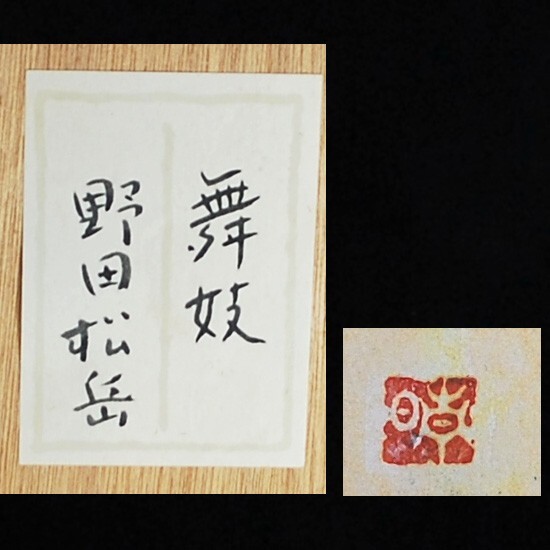 舞妓
野田松岳